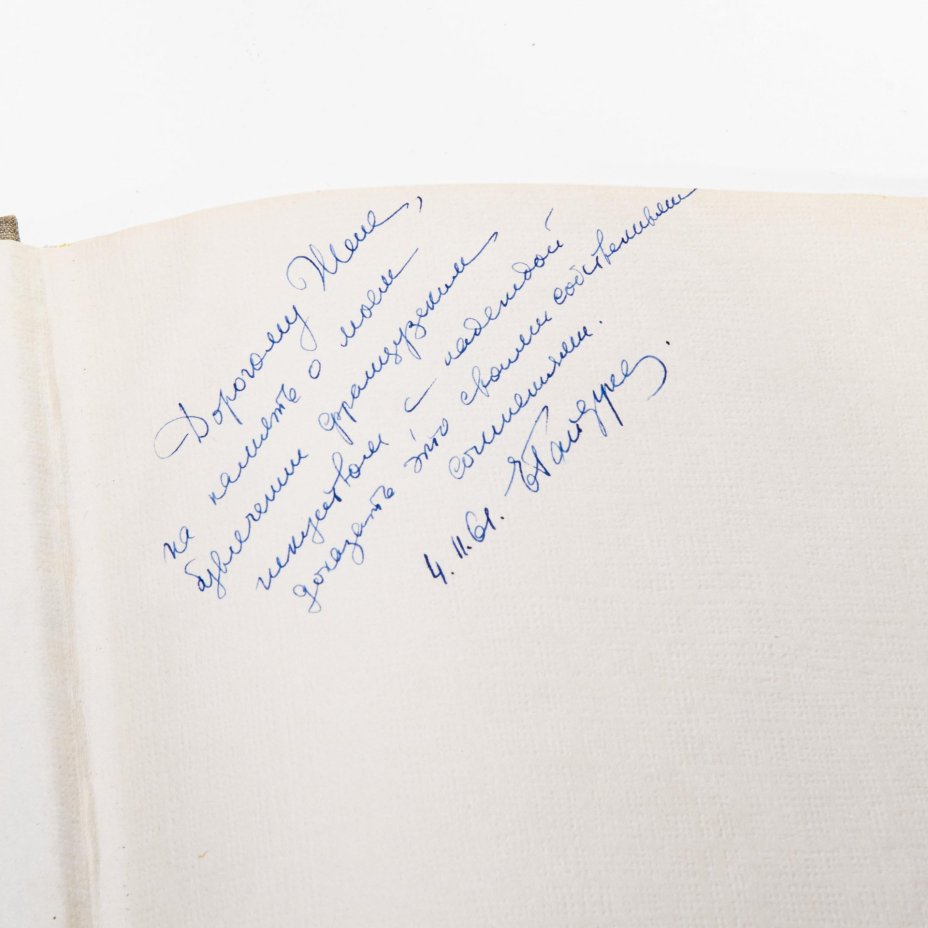 Дорогому Жене,
на память о моем
увлечении французским
искусством с надеждой
доказать это своими собственными
сочинениями.
4.II.61.